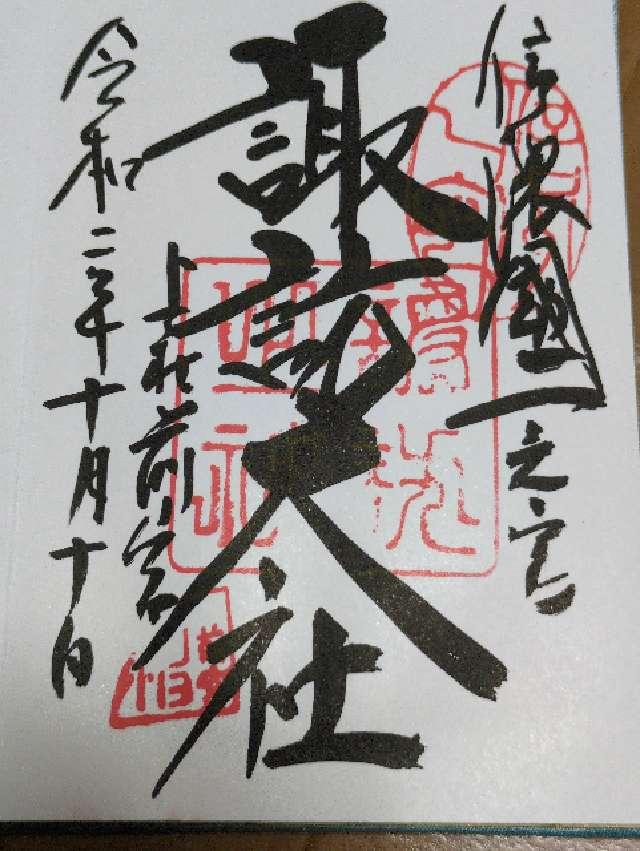 信濃國一之宮
諏訪大社
上社前宮
令和二年十月十日